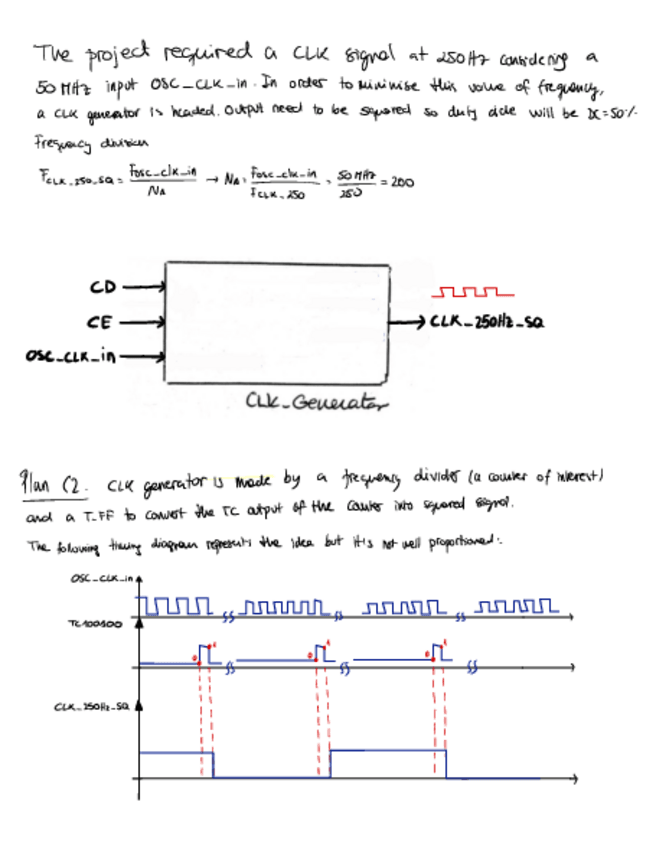 The project required a CLK signal at 250Hz considering a
50 MHz input OSC_CLK_in. In order to minimise this value of frequency,
a CLK generator is needed. Output need to be squared so duty cicle will be DC=50%
Frequency division
F_CLK_250_SQ = Fosc_clk_in / NA → NA = Fosc_clk_in / F_CLK_250 = 50 MHz / 250 = 200
CD
CE
OSC_CLK_in
CLK_250Hz_SQ
CLK_Generator
Plan C2. CLK generator is made by a frequency divider (a counter of interest)
and a T_FF to convert the TC output of the counter into squared signal.
The following timing diagram represents the idea but it is not well proportioned:
OSC_CLK_in
TC100100
CLK_250Hz_SQ